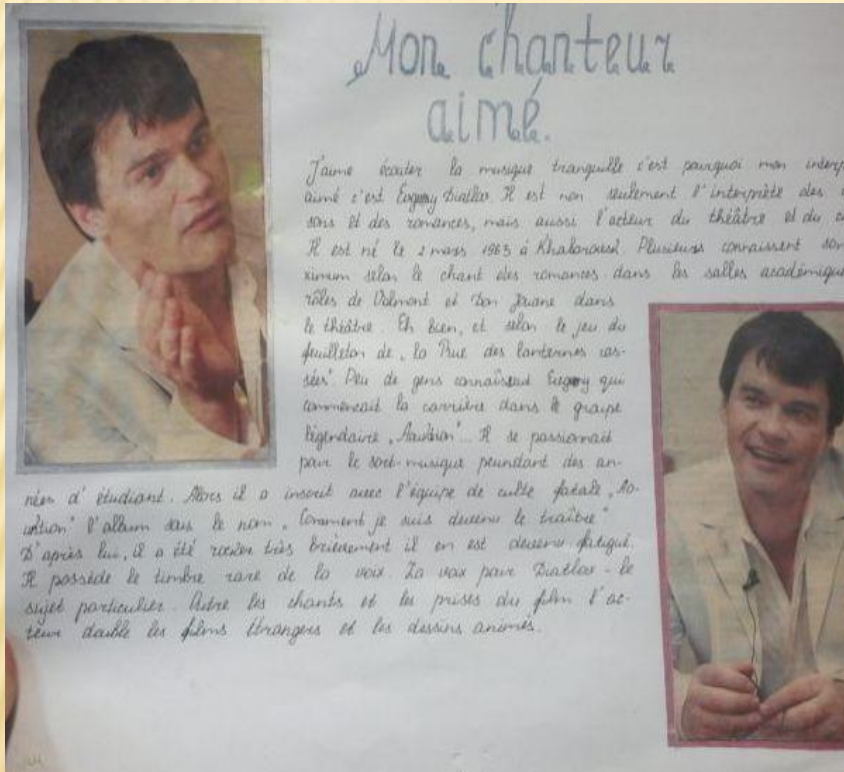 Mon chanteur
aimé.
J'aime écouter la musique tranquille c'est pourquoi mon interp
aimé c'est Evgeny Diatlov Il est non seulement l'interprète des
sons et des romances, mais aussi l'acteur du théâtre et du
Il est né le 2 mars 1963 à Khabarovsk. Plusieurs connaissent son
ximum selon le chant des romances dans les salles académique
rôles de Valmont et Don Jouane dans
le théâtre. Eh bien, et selon le jeu du
feuilleton de „la Rue des lanternes cas-
sées" Peu de gens connaîssent Evgeny qui
commencait la carrière dans le groupe
légendaire „Auktsion"... Il se passionait
pour le soct-musique peundant des an-
nées d'étudiant. Alors il a inscrit avec l'équipe de culte fatale „Au-
ktion" l'album sous le nom „Comment je suis devenu le traître"
D'après lui, il a été rocker très brièvement il en est devenu fatigué.
Il possède le timbre rare de la voix. La voix pour Diatlov - le
sujet particulier. Outre les chants et les prises du film l'ac-
teur double les films étrangers et les dessins animés.